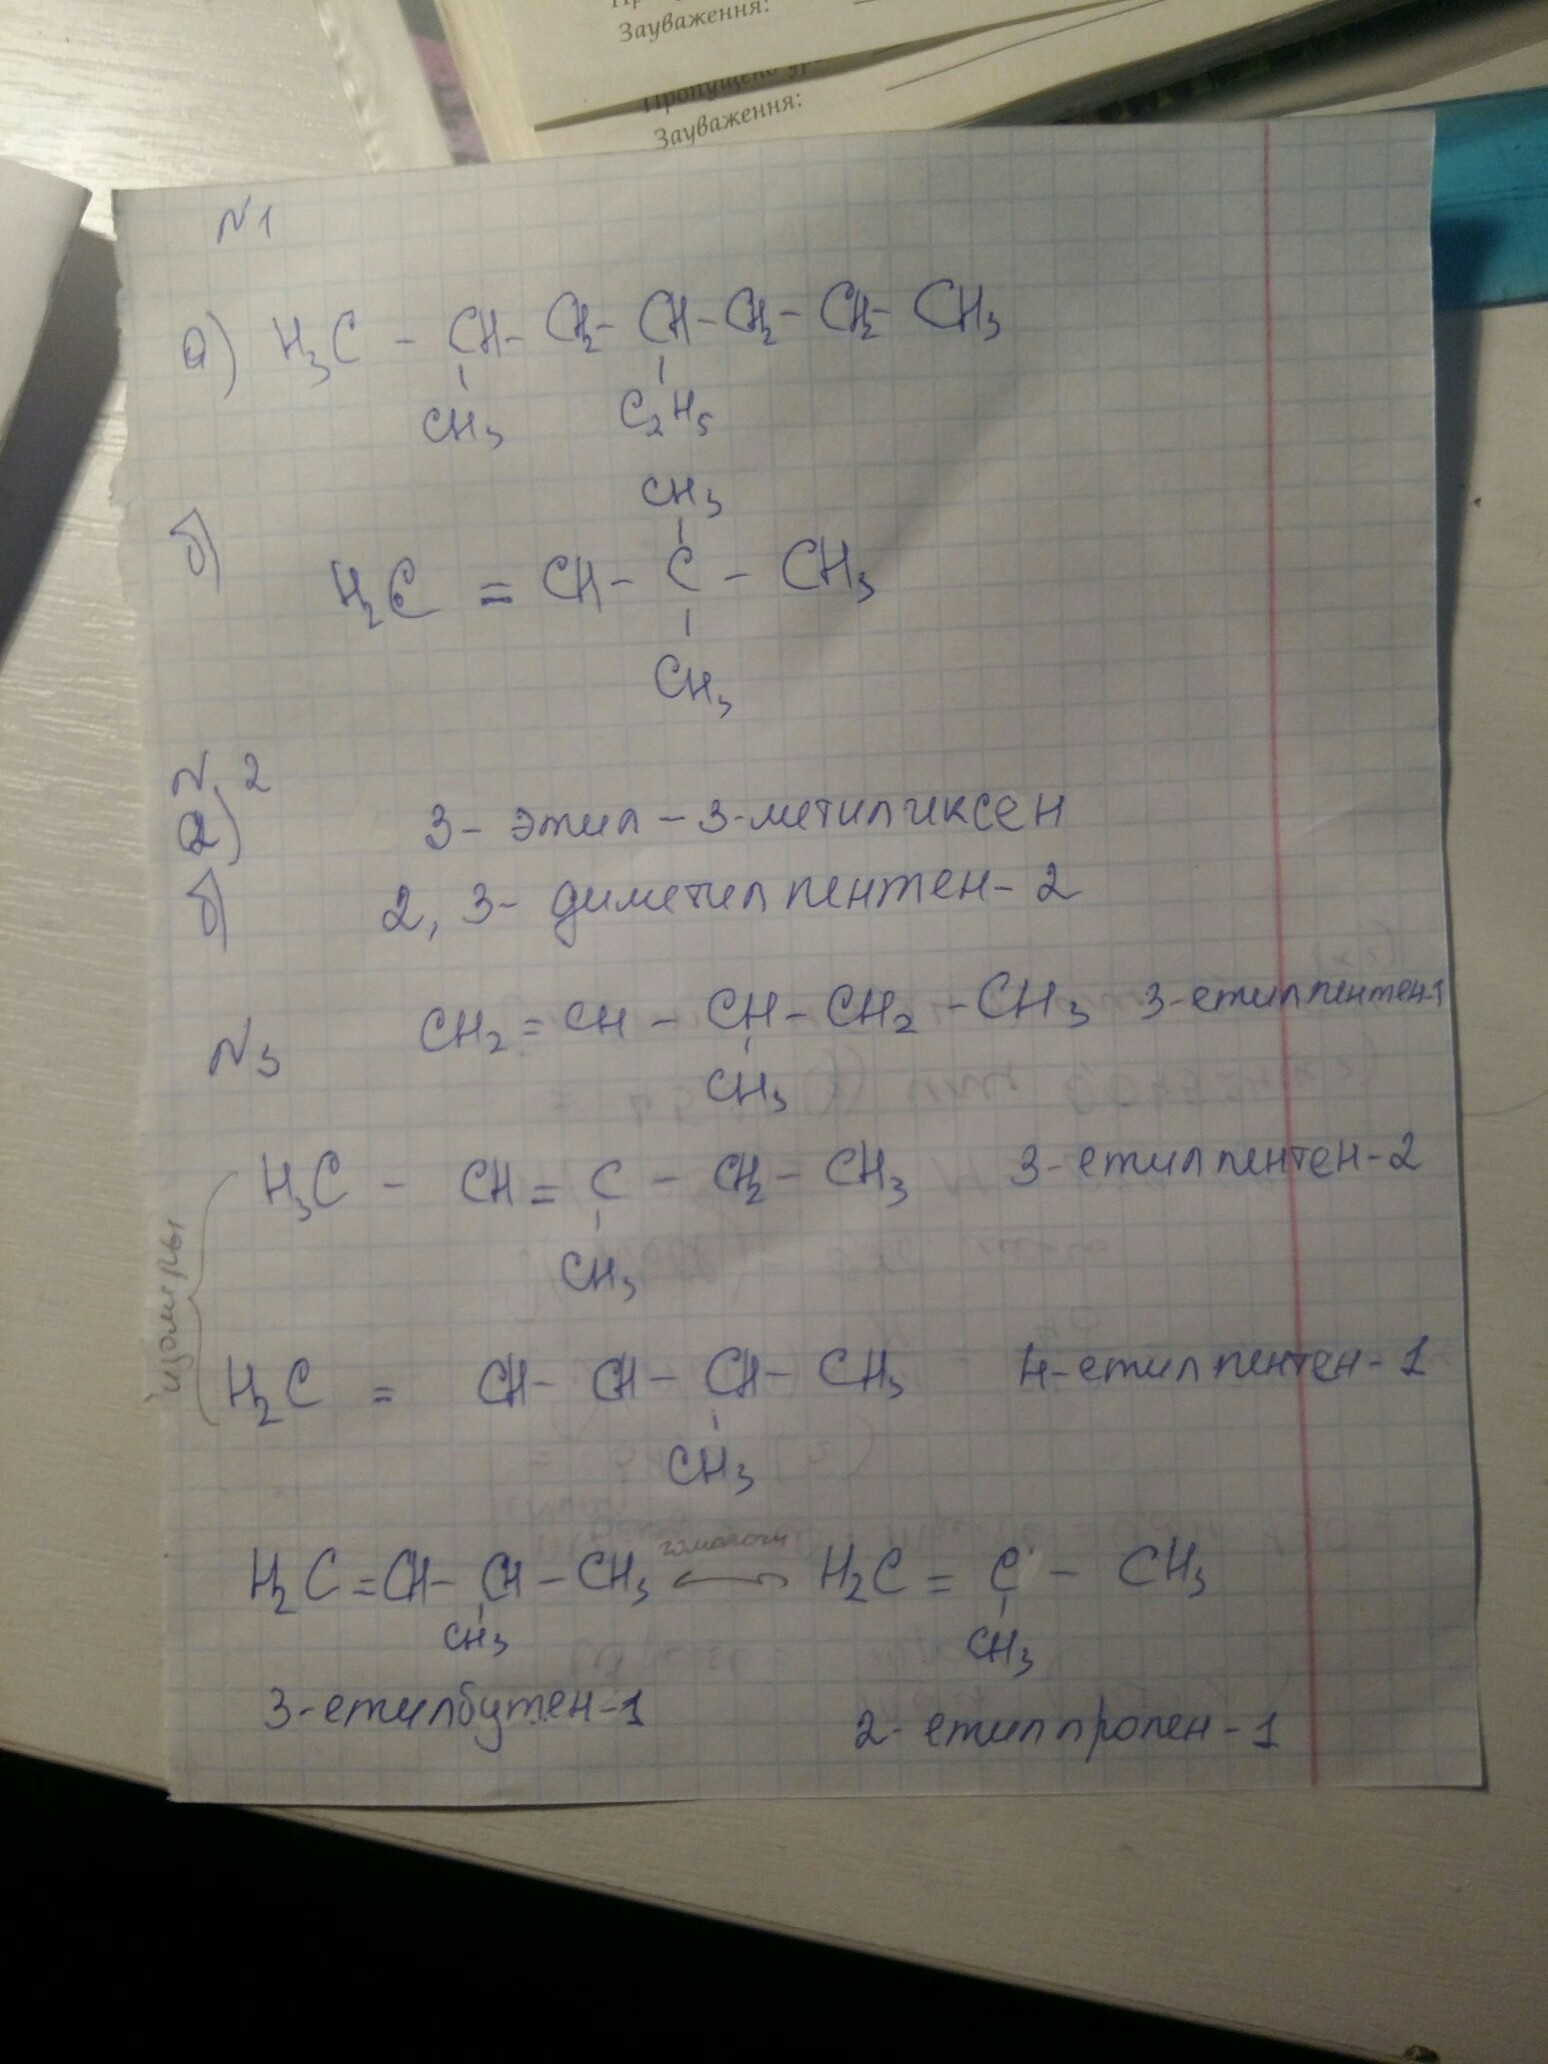 Зауваження:
Пропущено ур
Зауваження:
№1
а) H₃C - CH - CH₂ - CH - CH₂ - CH₂ - CH₃
CH₃ C₂H₅
CH₃
б) H₂C = CH - C - CH₃
CH₃
№ 2
а) 3- этил - 3-метилгиксен
б) 2, 3- диметилпентен- 2
№3 CH₂ = CH - CH - CH₂ - CH₃ 3-етилпентен-1
CH₃
H₃C - CH = C - CH₂ - CH₃ 3-етилпентен-2
CH₃
изомеры
H₂C = CH - CH - CH - CH₃ 4-етилпентен-1
CH₃
H₂C = CH - CH - CH₃ гомологи H₂C = C - CH₃
CH₃ CH₃
3-етилбутен-1 2- етилпропен-1